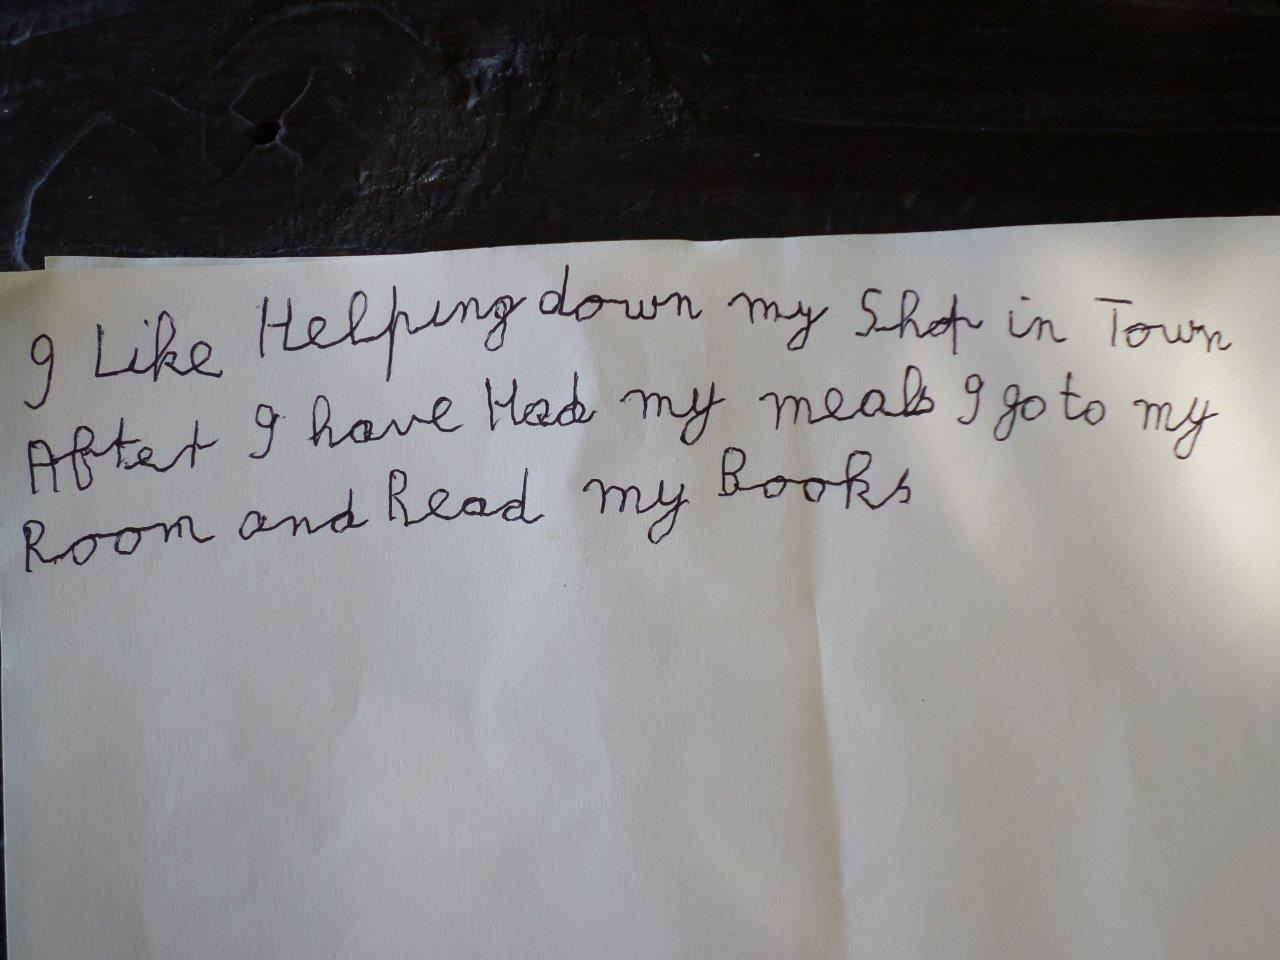 I Like Helping down my Shop in Town
After I have Had my meals I go to my
Room and Read my Books